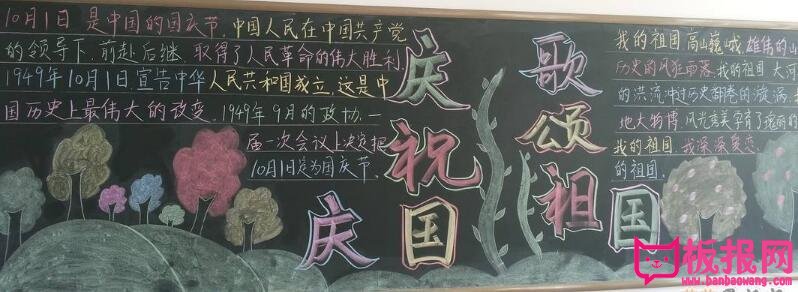 10月1日 是中国的国庆节,中国人民在中国共产党
的领导下,前赴后继,取得了人民革命的伟大胜利,
1949年10月1日,宣告中华人民共和国成立,这是中
国历史上最伟大的改变。1949年9月的政协一
届一次会议上决定把
10月1日定为国庆节、
庆祝
国庆
歌颂
祖国
我的祖国,高山巍峨,雄伟的山
历史的风狂雨落,我的祖国 大河
的洪流冲过历史翻卷的漩涡,
地大物博,风光秀美,孕育了瑰丽的
我的祖国,我深深爱恋
的祖国。
板报网
www.banbaowang.com